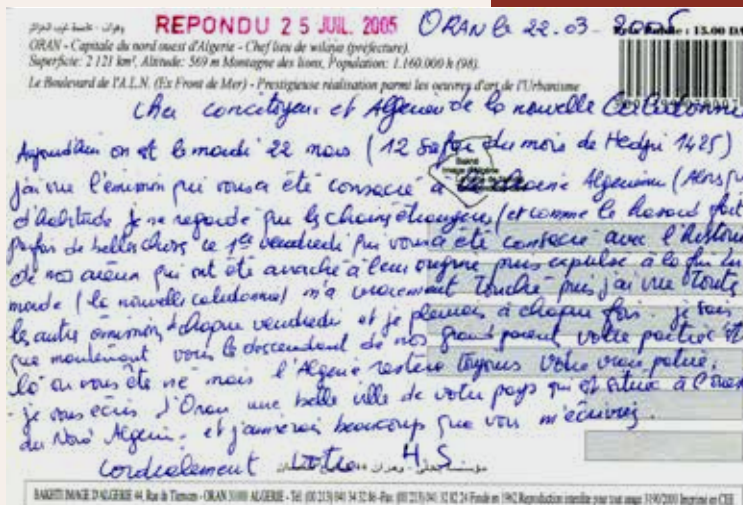 وهران - عاصمة غرب الجزائر
REPONDU 25 JUIL. 2005
ORAN le 22.03-2005
15.00 DA
ORAN - Capitale du nord ouest d'Algerie - Chef lieu de wilaya (préfecture).
Superficie: 2 121 km², Altitude: 569 m Montagne des lions, Population: 1.160.000 h (98).
Le Boulevard de l'A.L.N. (Ex Front de Mer) - Prestigieuse réalisation parmi les oeuvres d'art de l'Urbanisme
Cher concitoyen et Algerien de la nouvelle Caledonnie
Aujourd'hui on est le mardi 22 mars (12 Safar du mois de Hedjri 1425)
j'ai vue l'émission qui vous a été consacré à la chaine Algerienne (Alors que
d'habitude je ne regarde que les chaines étrangeres (et comme le hasard fait
parfois de belles choses ce 1er vendredi qui vous a été consacré avec l'histoire
de nos aieux qui ont été arraché à leur origine puis expulsé à la fin du
monde (la nouvelle caledonnie) m'a vraiment touché puis j'ai vue toute
les autre émission chaque vendredi et je pleurais à chaque fois. je sais
que maintenant vous le descendant de nos grand parent votre patrie est
là où vous ête né mais l'Algerie restera toujours votre vrai patrie.
- je vous écris d'Oran une belle ville de votre pays qui est situé à l'ouest
du Nord Algerie. et j'aimerai beaucoup que vous m'écrivez.
Cordialement votre H S
BAKHTI IMAGE D'ALGERIE 44, Rue de Tlemcen - ORAN 31000 ALGERIE - Tél: (00 213) 041 34 32 86 - Fax: (00 213) 041 32 82 24 Fondé en 1962 Reproduction interdite pour tout usage 3190/2000 Imprimé en CEE